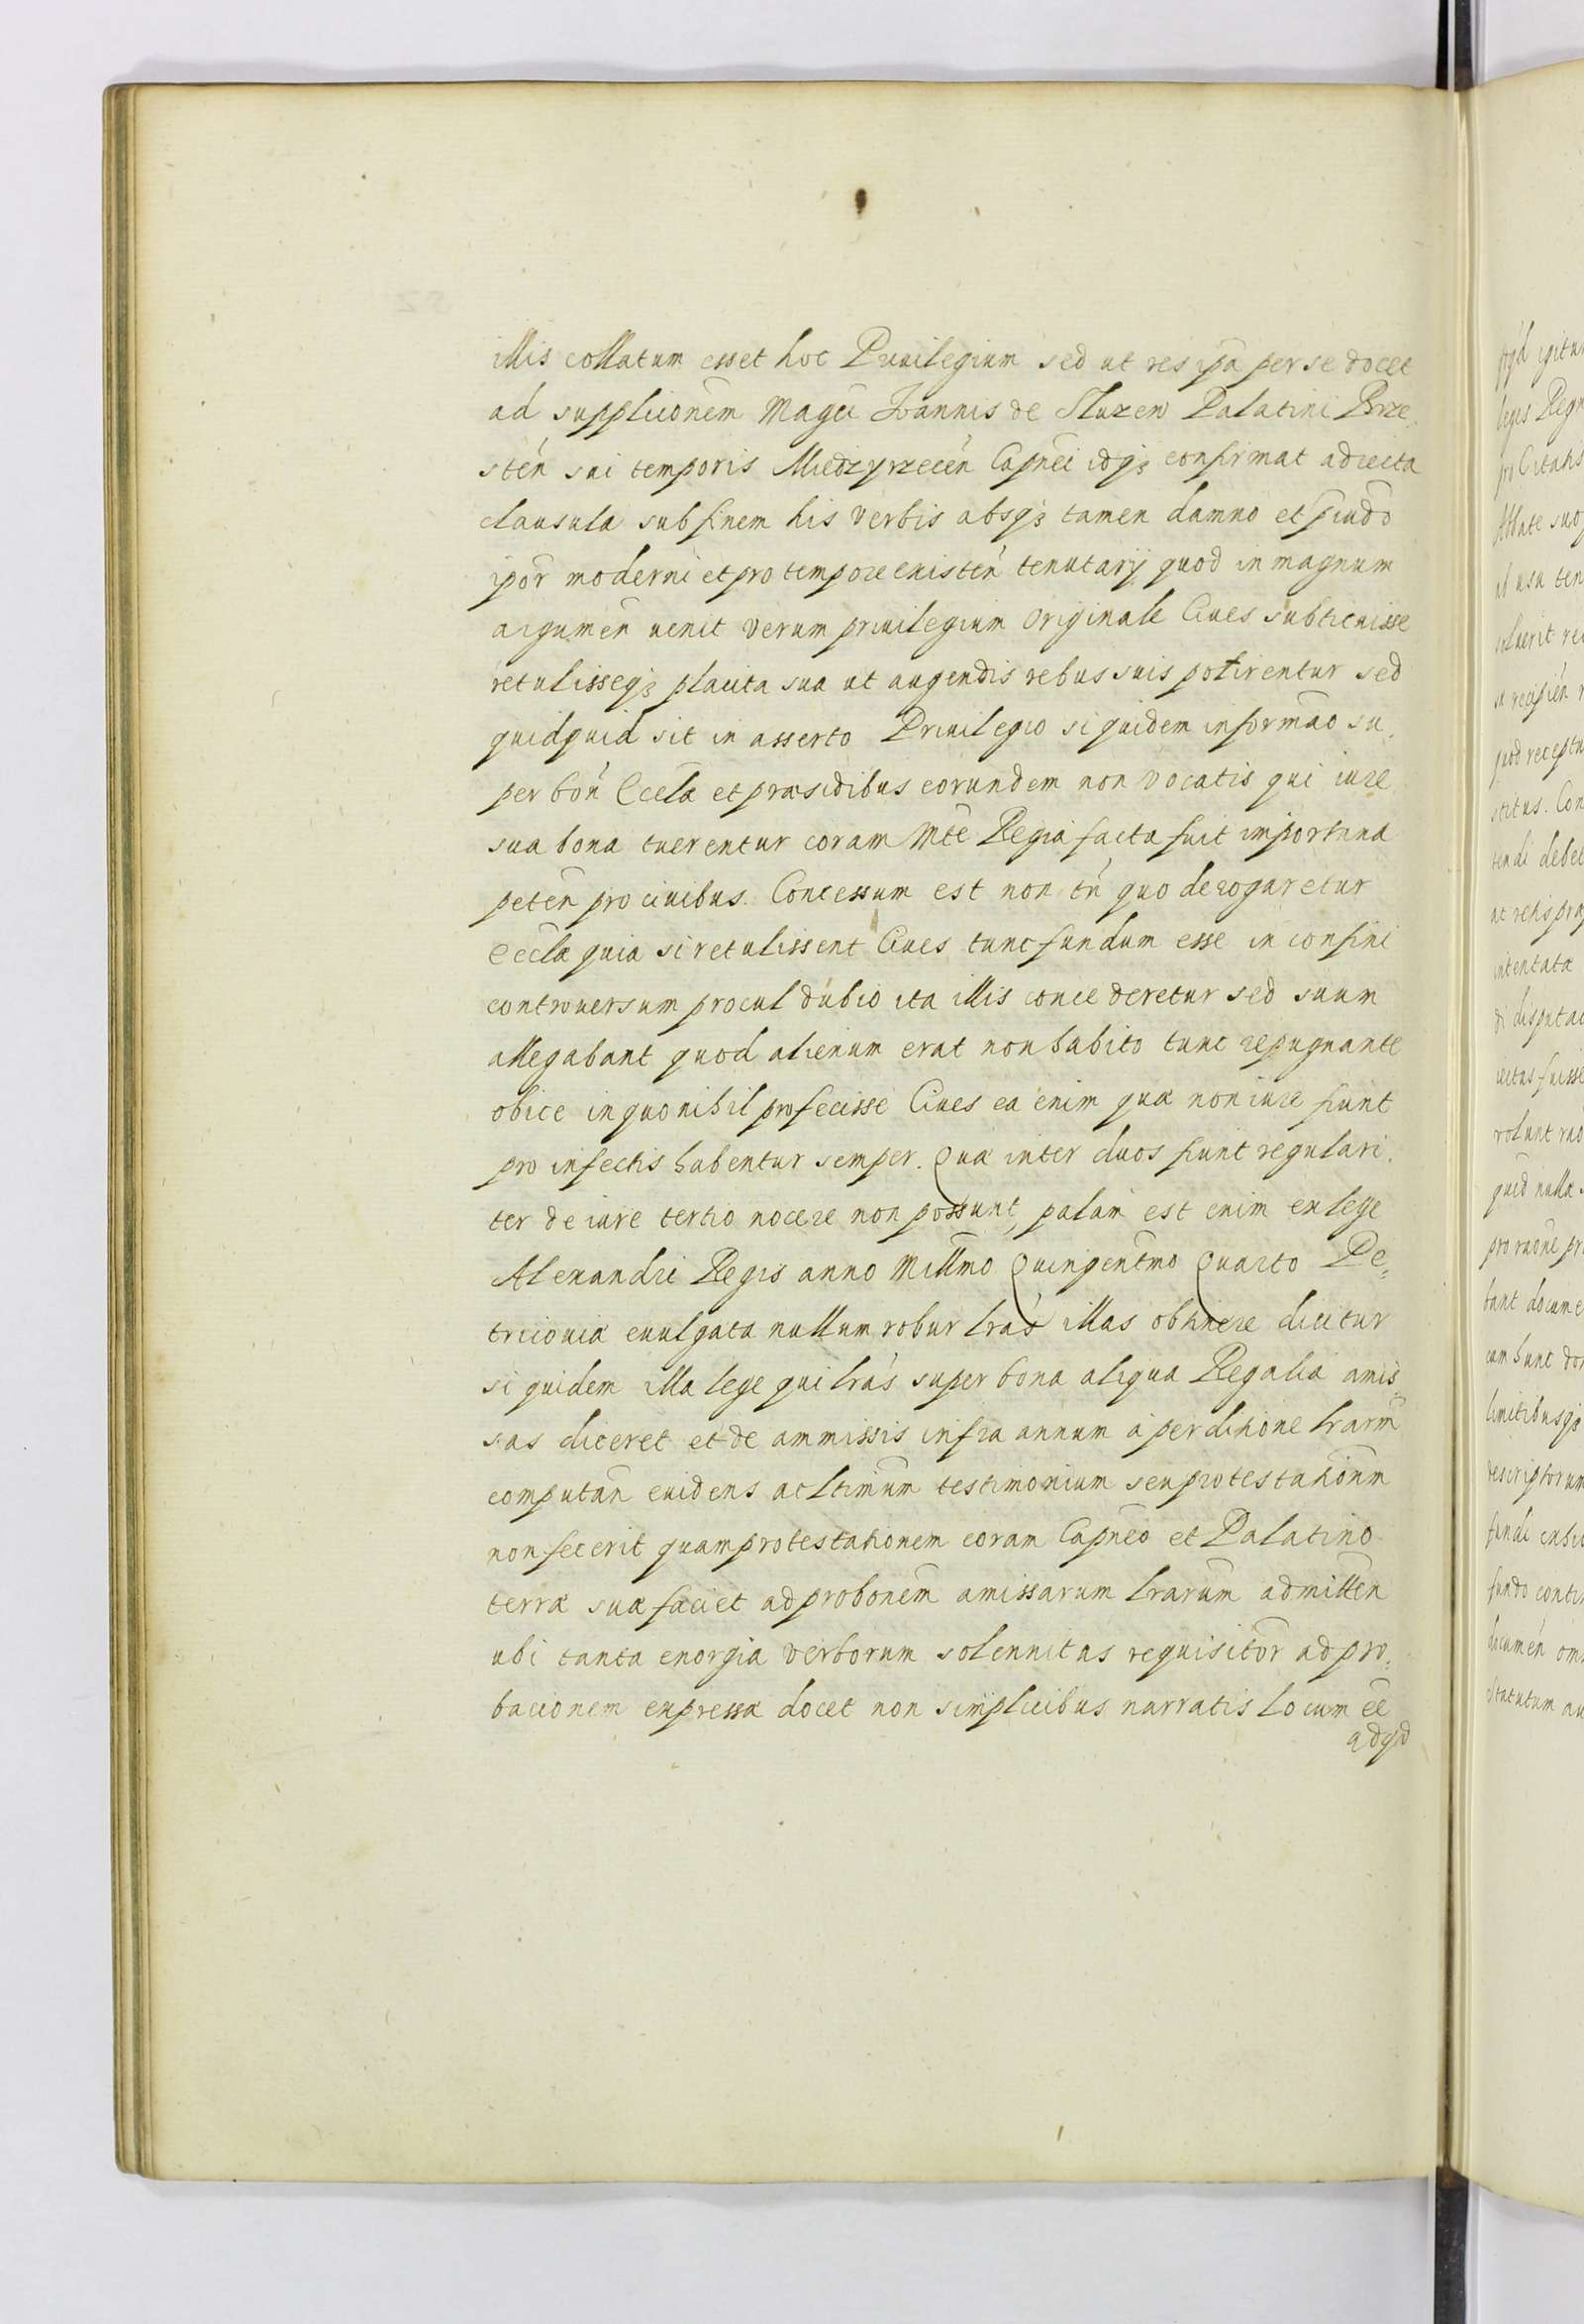 illis collatum esset hoc Priuilegium sed ut res ipa per se docet
ad supplicionem Magci Joannis de Sluzew Palatini Brze
stén sui temporis Miedzyrzecén Capnei idq3 confirmat adiecta
clausula sub finem his verbis absq3 tamen damno et piudo
ipor moderni et pro tempore existén tenutarij quod in magnum
argumen uenit verum priuilegium originale Ciues subticuisse
retulisseq3 placita sua ut augendis rebus suis potirentur sed
quidquid sit in asserto Priuilegio siquidem informao su,
per bon Eccla et præsidibus eorundem non vocatis qui iure
sua bona tuerentur coram Mte Regia facta fuit importuna
peten pro ciuibus. Concessum est non tn quo derogaretur
Eccla quia si retulissent Ciues tunc fundum esse in confini
controuersum procul dubio ita illis concederetur sed suum
allegabant quod alienum erat non habito tunc repugnante
obice in quo nihil profecisse Ciues ea enim quæ non iure fiunt
pro infectis habentur semper. Quæ inter duos fiunt regulari,
ter de iure tertio nocere non possunt, palam est enim ex lege
Alexandri Regis anno Millmo Quingentmo Quarto Pe,,
tricouiæ euulgata nullum robur lras illas obtinere dicitur
siquidem illa lege qui lras super bona aliqua Regalia amis,,
sas diceret et de ammissis infra annum à perditione lrarm
computan euidens ac ltimum testimonium seu protestationm
non fecerit quam protestationem coram Capneo et Palatino
terræ suæ faciet ad probonem amissarum lrarum admitten
ubi tanta enorgia verborum solennitas requisitor ad pro,,
bacionem expressa docet non simplicibus narratis locum ee
adqd